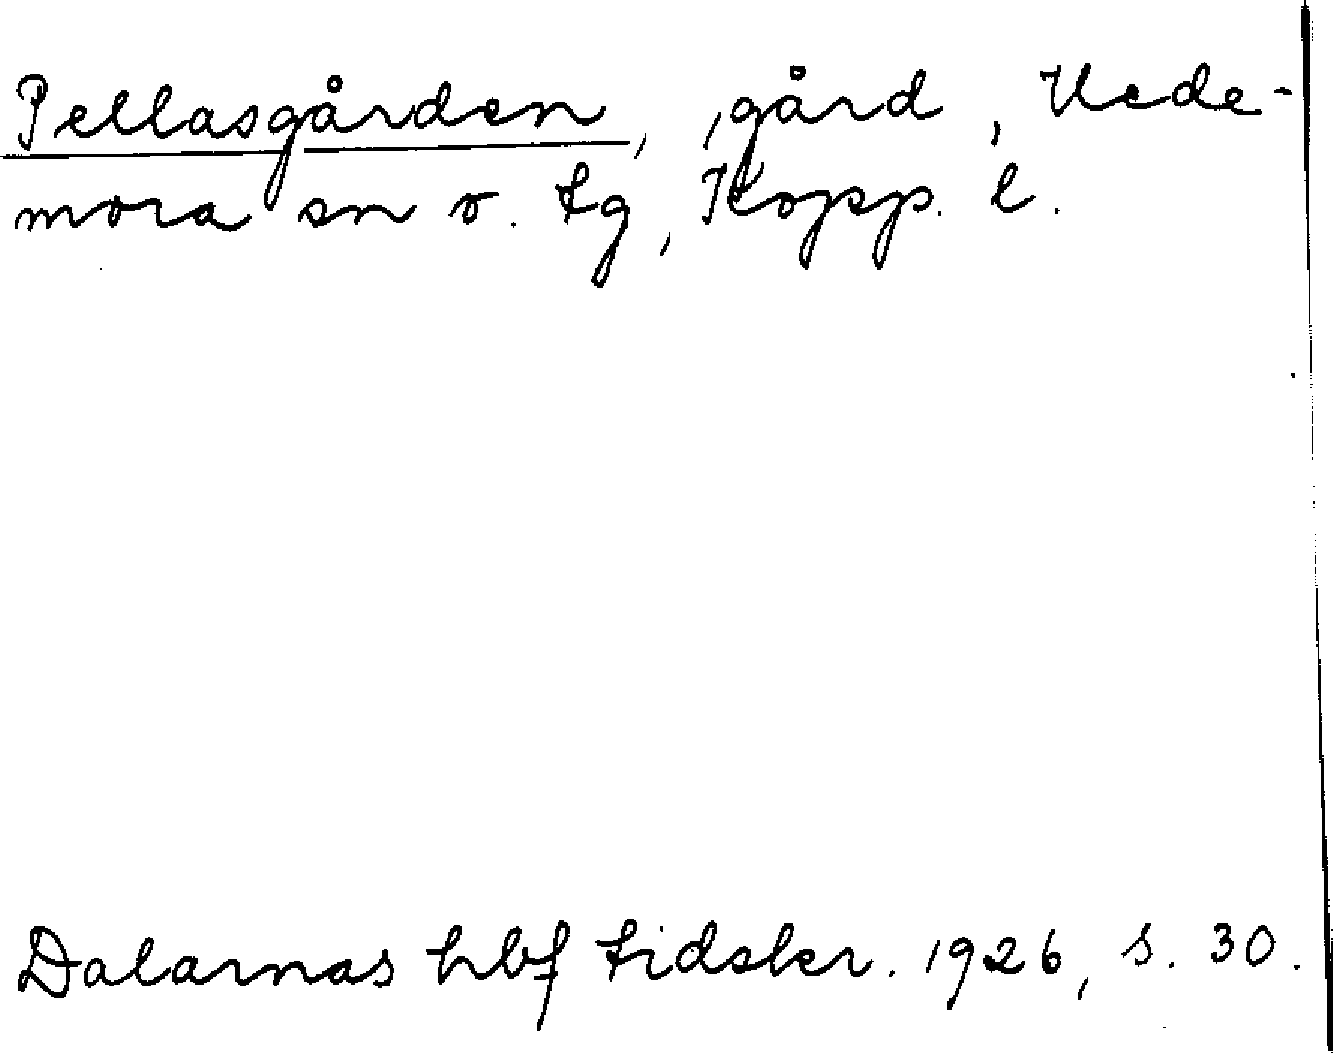 Pellasgården, ,gård, Hede-
mora sn o. tg, Kopp. l.
Dalarnas hbf tidskr. 1926, s. 30.